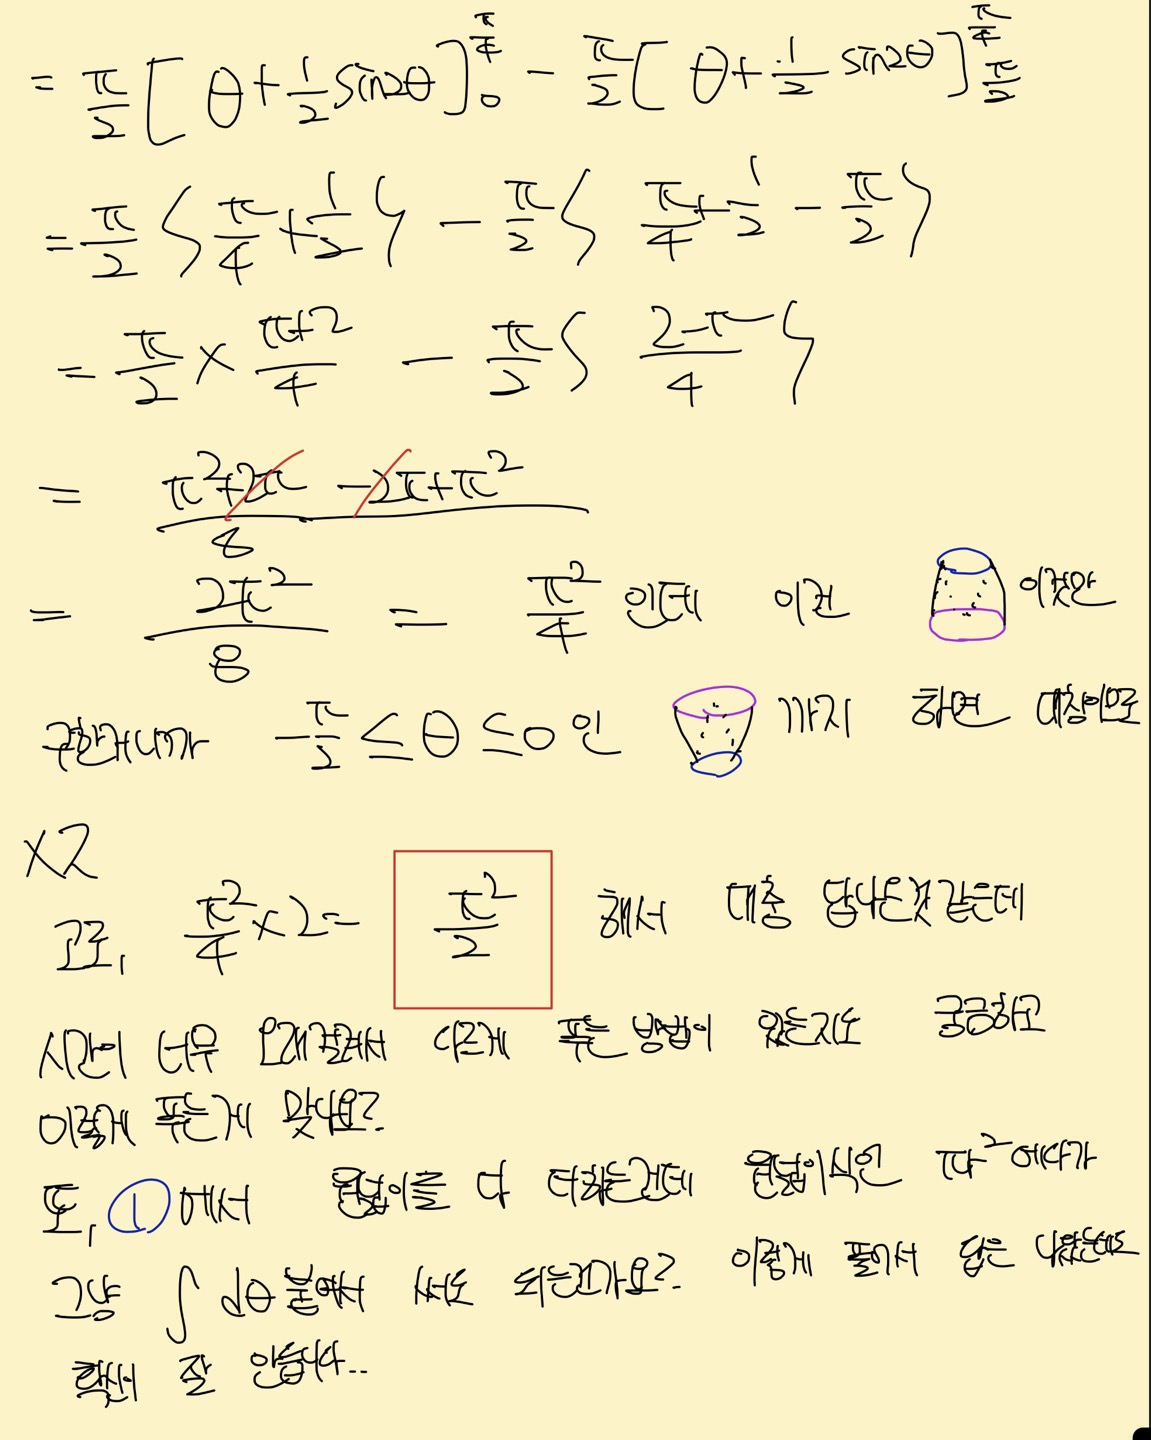 = π/2 [ θ + 1/2 sin2θ ]_0^{π/4} − π/2 [ θ + 1/2 sin2θ ]_{π/2}^{π/4}
= π/2 { π/4 + 1/2 } − π/2 { π/4 + 1/2 − π/2 }
= π/2 × (π+2)/4 − π/2 { (2−π)/4 }
= (π²+2π −2π+π²)/8
= 2π²/8 = π²/4 인데 이건 이것만
구한거니까 −π/2 ≤ θ ≤ 0 인 까지 하면 대칭이므로
×2
고로, π²/4 × 2 = π²/2 해서 대충 답나온것 같은데
시간이 너무 오래걸려서 다르게 푸는 방법이 있는지도 궁금하고
이렇게 푸는게 맞나요?
또, ① 에서 원넓이를 다 더하는건데 원넓이식인 πr² 에다가
그냥 ∫ dθ 붙여서 써도 되는건가요? 이렇게 풀어서 답은 나왔는데도
확신이 잘 안섭니다...